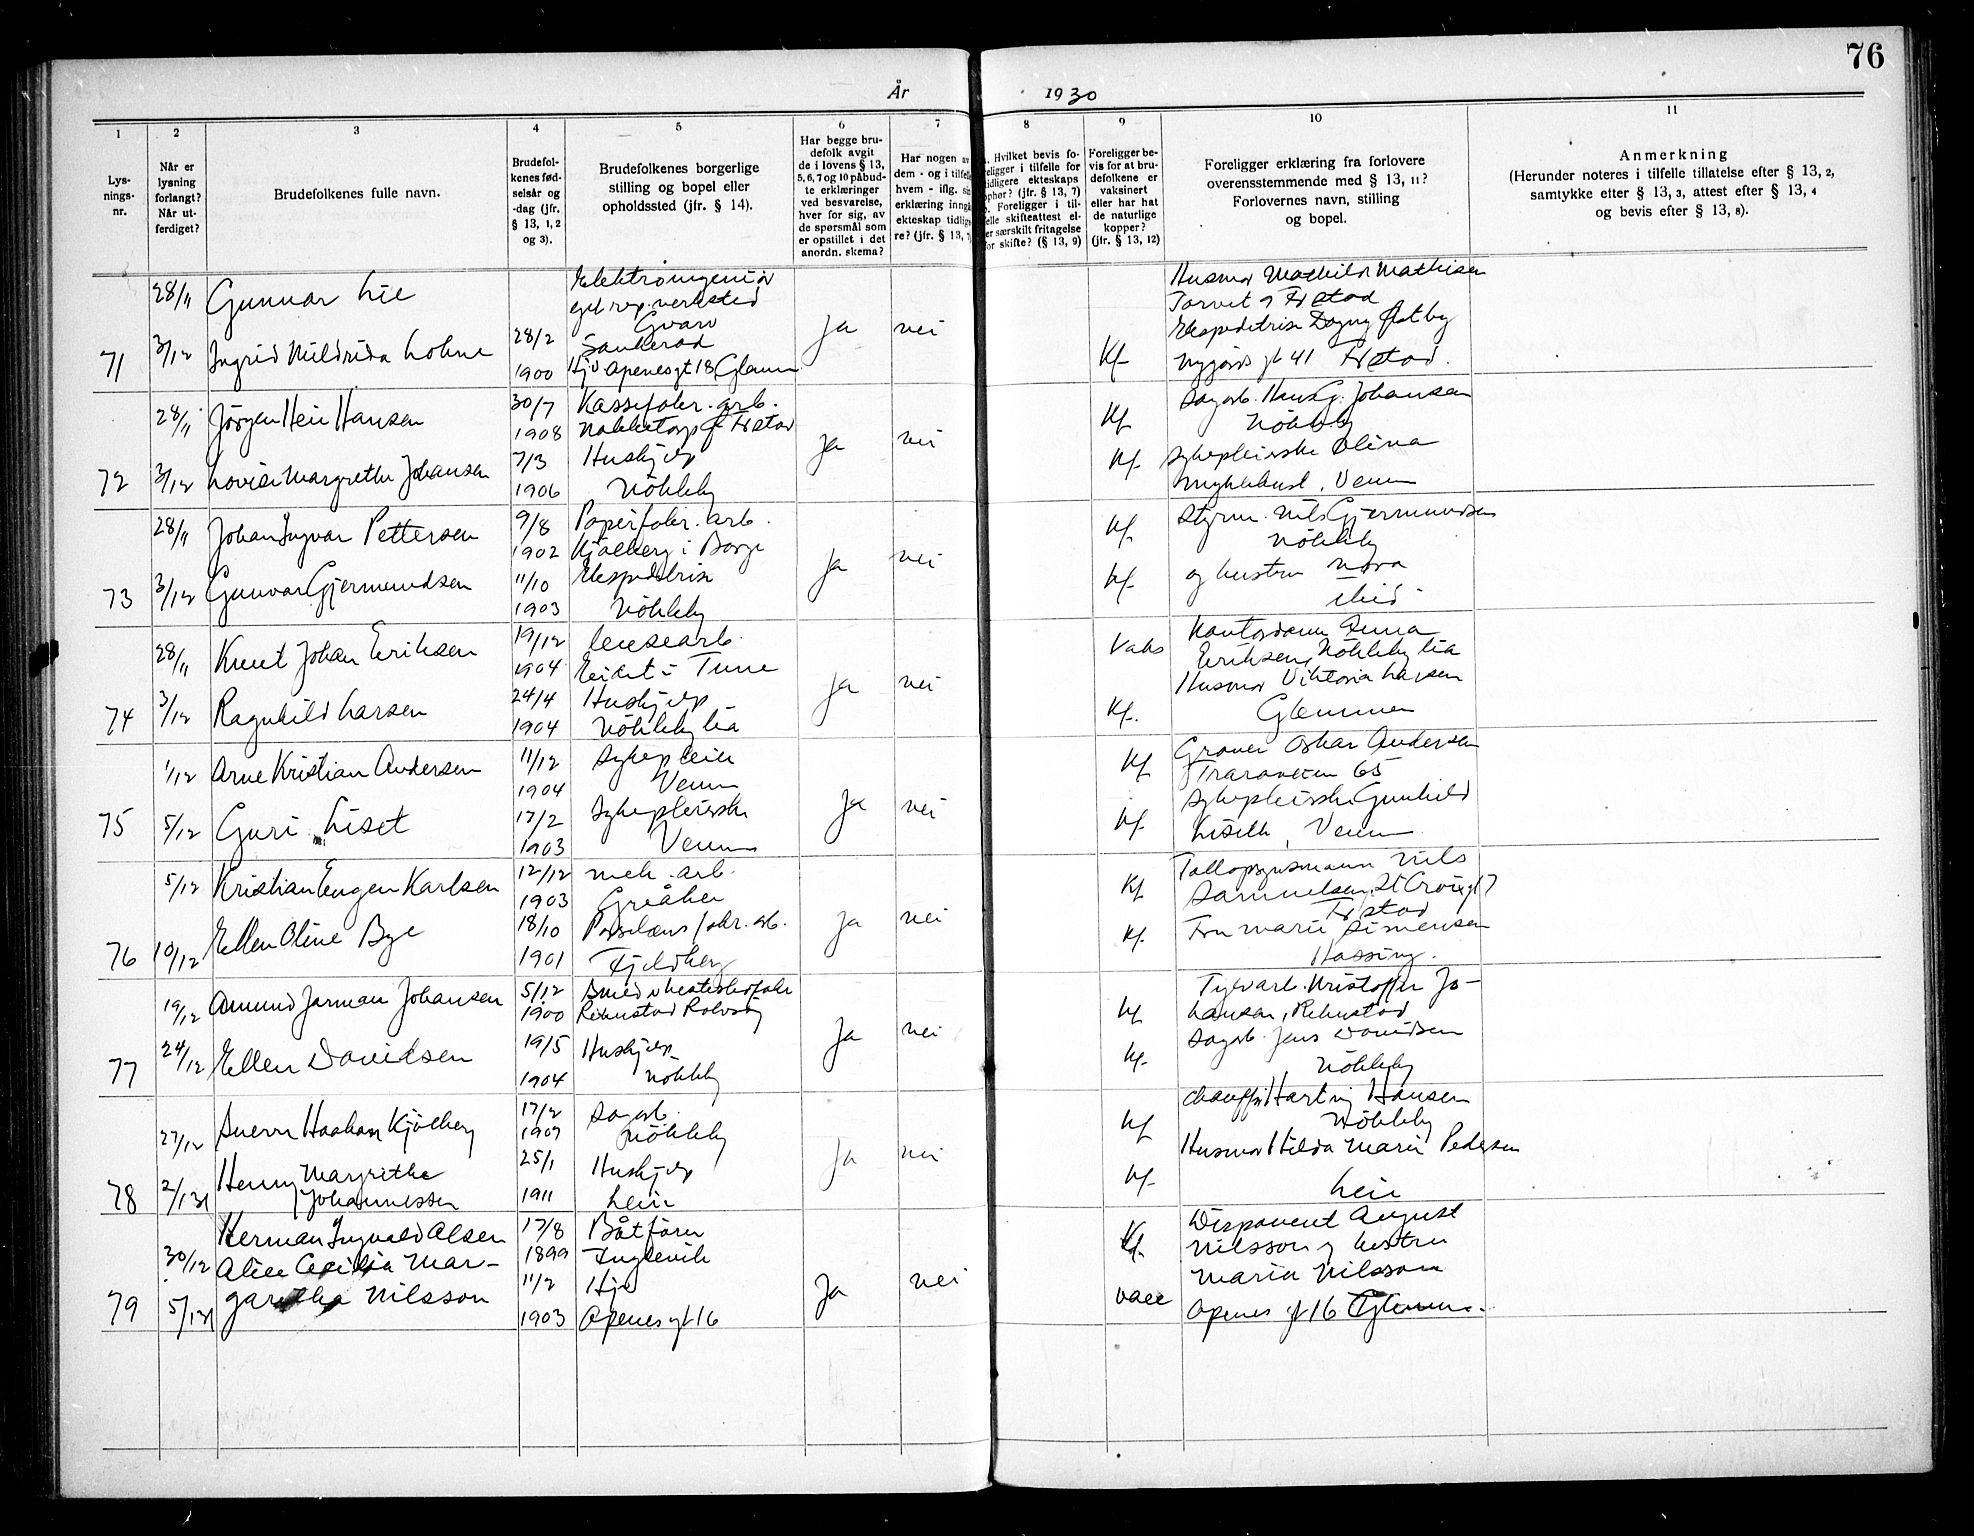 76
År 1930
1
2
3
4
5
6
7
8
9
10
11
Lys-
nings-
nr.
Når er
lysning
forlangt?
Når ut-
ferdiget?
Brudefolkenes fulle navn.
Brudefol-
kenes fød-
selsår og
-dag (jfr.
§ 13, 1, 2
og 3).
Brudefolkenes borgerlige
stilling og bopel eller
opholdssted (jfr. § 14).
Har begge bru-
defolk avgit
de i lovens § 13,
5, 6, 7 og 10 påbud-
te erklæringer
ved besvarelse,
hver for sig, av
de spørsmål som
er opstillet i det
anordn. skema?
Har nogen av
dem - og i tilfelle
hvem - iflg. sin
erklæring inngå
ekteskap tidlig
re? (jfr. § 13,
Hvilket bevis fo-
religger i tilfelle for
tidligere ekteskaps
ophør? (jfr. § 13, 7)
Foreligger i til-
felle skifteattest el-
er særskilt fritagelse
for skifte? (§ 13, 9)
Foreligger be-
vis for at bru-
defolkene er
vaksinert
eller har hat
de naturlige
kopper?
(jfr. § 13, 12)
Foreligger erklæring fra forlovere
overensstemmende med § 13, 11?
Forlovernes navn, stilling
og bopel.
Anmerkning
(Herunder noteres i tilfelle tillatelse efter § 13, 2,
samtykke efter § 13, 3, attest efter § 13, 4
og bevis efter § 13, 8).
71
28/11
3/12
Gunnar Lie
Ingrid Mildrida Lohne
28/2
1900
Elektroingeniör
eget rep. verksted
Gvarv
Sauherad
Apenesgt 18 Glemm
Ja
nei
Kf
Husmor Mathilde Mathisen
Torvet 9 Frstad
Ekspeditrise Dagny Östby
Nygårds gt 41 Frstad.
72
28/11
3/12
Jörgen Hein Hansen
Lovise Margrethe Johansen
30/7
1908
7/3
1906
Kassefabr. arb.
Nabbetorp pr Frstad
Hushjelp
Nökleby
Ja
nei
Kf
Kf
Sagarb. Hans G. Johansen
Nökleby
Sykepleierske Olina
Myklebust, Veum
73
28/11
3/12
Johan Ingvar Pettersen
Gunvor Gjermundsen
9/8
1902
11/10
1903
Papirfabr. arb.
Kjölberg i Borge
Ekspeditrise
Nökleby
Ja
nei
Kf
Kf
Styrm. Nils Gjermundsen
Nökleby
og hustru Nora
ibid.
74
28/11
3/12
Knut Johan Eriksen
Ragnhild Larsen
19/12
1904
24/4
1904
lensearb.
Eidet i Tune
Hushjelp
Nökleby lia
Ja
nei
Vaks
Kf.
Kontordame Anna
Eriksen, Nökleby lia
Husmor Viktoria Larsen
Glemmen
75
1/12
5/12
Arne Kristian Andersen
Guri Liset
11/12
1904
17/2
1903
Sykepleier
Veum
Sykepleierske
Veum
Ja
nei
Kf
Kf
Graver Oskar Andersen
Traraveien 65
Sykepleierske Gunhild
Veum
76
5/12
10/12
Kristian Eugen Karlsen
Ellen Oline Bye
12/12
1903
18/10
1901
mek. arb.
Gråker
Porselens fabr. arb.
Fjeldberg
Ja
nei
Kf
Kf
Tollopsynsmann Nils
Samuelsen, St Croixgt 7
Frstad
Fru Marie Simensen
Hassing.
77
19/12
24/12
Amund Jarman Johansen
Ellen Davidsen
5/12
1900
19/5
1904
Rekustad Rolvsöy
Hushjelp
Nökleby
Ja
nei
Kf
Kf
Kristoffer Jo-
hansen, Rekustad
Sagarb. Jens Davidsen
Nökleby
78
27/12
2/1 31
Sverre Haakon Kjölberg
Henny Margrethe
Johannessen
17/2
1907
25/1
1911
Sagarb.
Nökleby
Hushjelp
Leie
Ja
nei
Kf
Kf
Chauffør Harting Hansen
Nökleby
Husmor Hilda Marie Pedersen
Leie
79
30/12
5/1 31
Herman Ingvald Olsen
Alice Cecilia Mar-
garetha Nilsson
17/8
1899
11/2
1903
Båtförer
Inglevik
Hj.
Apenes gt 16
Ja
nei
Kf.
vacc
Disponent August
Nilsson og hustru
Maria Nilsson
Apenes gt 16 Glemm.